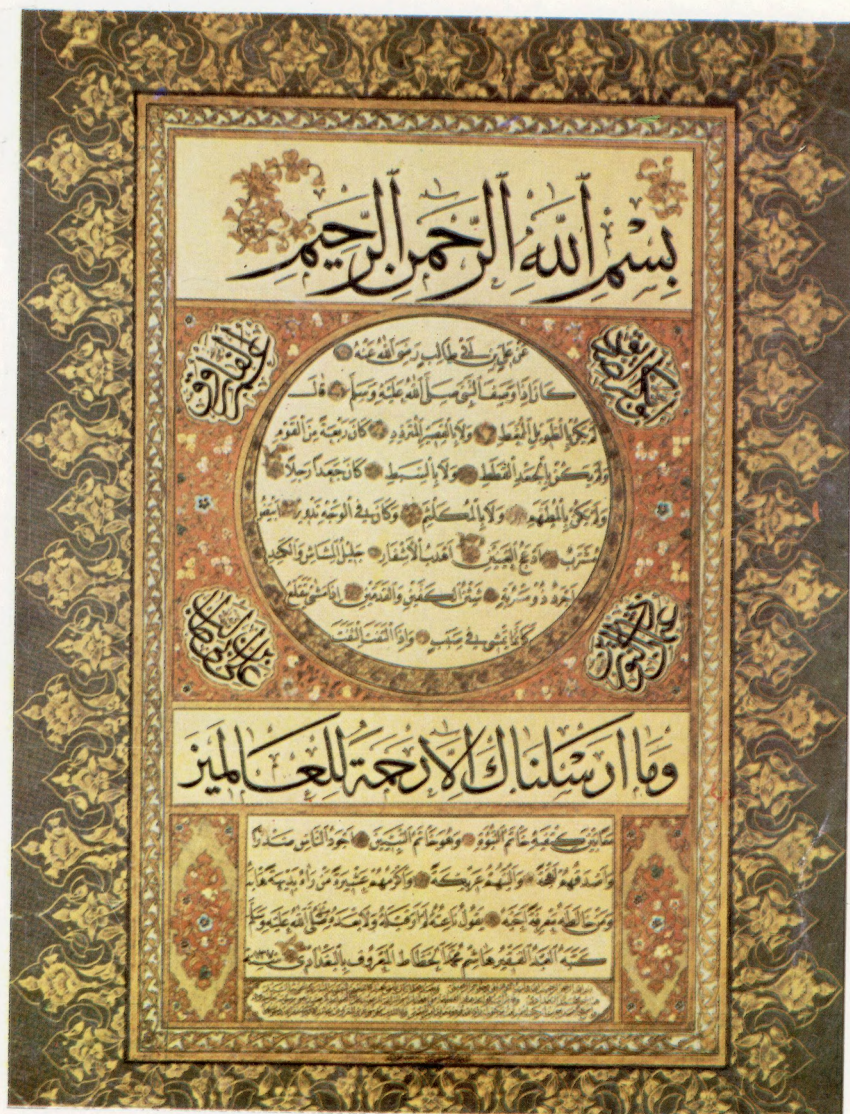 بِسْمِ ٱللَّهِ ٱلرَّحْمَنِ ٱلرَّحِيمِ
عَنْ عَلِيِّ بْنِ أَبِي طَالِبٍ رَضِيَ اللهُ عَنْهُ
كَانَ إِذَا وَصَفَ النَّبِيَّ صَلَّى اللهُ عَلَيْهِ وَسَلَّمَ قَالَ
لَمْ يَكُنْ بِالطَّوِيلِ الْمُمَّغِطِ وَلَا بِالْقَصِيرِ الْمُتَرَدِّدِ كَانَ رَبْعَةً مِنَ الْقَوْمِ
وَلَمْ يَكُنْ بِالْجَعْدِ الْقَطَطِ وَلَا بِالسَّبِطِ كَانَ جَعْداً رَجِلاً
وَلَمْ يَكُنْ بِالْمُطَهَّمِ وَلَا بِالْمُكَلْثَمِ وَكَانَ فِي الْوَجْهِ تَدْوِيرٌ أَبْيَضُ
مُشْرَبٌ أَدْعَجُ الْعَيْنَيْنِ أَهْدَبُ الْأَشْفَارِ جَلِيلُ الْمُشَاشِ وَالْكَتَدِ
أَجْرَدُ ذُو مَسْرُبَةٍ شَثْنُ الْكَفَّيْنِ وَالْقَدَمَيْنِ إِذَا مَشَى تَقَلَّعَ
كَأَنَّمَا يَمْشِي فِي صَبَبٍ وَإِذَا الْتَفَتَ الْتَفَتَ
عمر الفاروق
علي بن أبي طالب
وَمَا أَرْسَلْنَاكَ إِلَّا رَحْمَةً لِلْعَالَمِينَ
مَعًا بَيْنَ كَتِفَيْهِ خَاتَمُ النُّبُوَّةِ وَهُوَ خَاتَمُ النَّبِيِّينَ أَجْوَدُ النَّاسِ صَدْرًا
وَأَصْدَقُهُمْ لَهْجَةً وَأَلْيَنُهُمْ عَرِيكَةً وَأَكْرَمُهُمْ عَشِيرَةً مَنْ رَآهُ بَدِيهَةً هَابَهُ
وَمَنْ خَالَطَهُ مَعْرِفَةً أَحَبَّهُ يَقُولُ نَاعِتُهُ لَمْ أَرَ قَبْلَهُ وَلَا بَعْدَهُ مِثْلَهُ صَلَّى اللهُ عَلَيْهِ وَسَلَّمَ
كَتَبَهُ الْعَبْدُ الْفَقِيرُ هَاشِمُ مُحَمَّدٍ الْخَطَّاطُ الْمَعْرُوفُ بِالْبَغْدَادِيِّ سنة ١٣٧٠